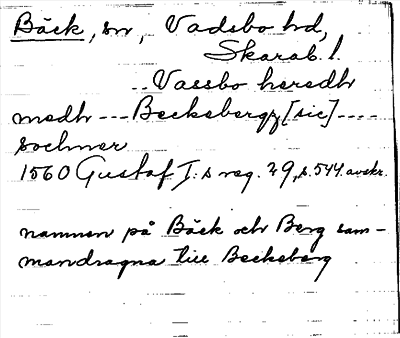 Bäck, sn, Vadsbo hd,
Skarab. l.
.. Vassbo heredh
medh --- Beckebergz [sic] ----
sochner
1560 Gustaf I:s reg. 29, s. 544. avskr.
namnen på Bäck och Berg sam-
mandragna till Beckeberg